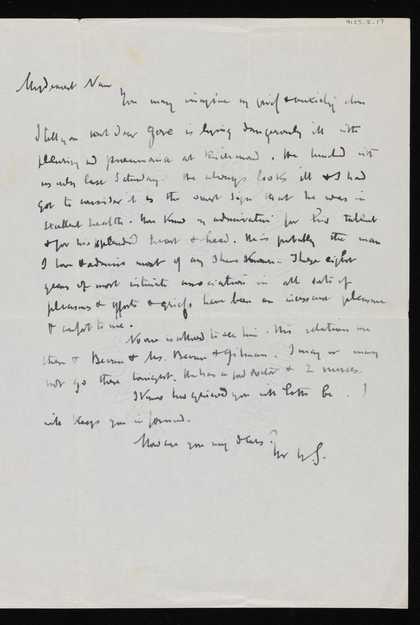 9125.2.17
My dearest Nan
You may imagine my grief & anxiety when
I tell you that dear Gore is lying dangerously ill with
pleurisy and pneumonia at Richmond. He lunched with
us only last Saturday. He always looks ill & I had
got to consider it as the surest sign that he was in
excellent health. You know my admiration for his talent
& for his splendid heart & head. He is probably the man
I love & admire most of any I have known. These eight
years of most intimate association in all sorts of
pleasures & efforts & griefs have been an incessant pleasure
& comfort to me.
No one is allowed to see him. His relations are
there & Bevan & Mrs. Bevan & Gilman. I may or may
not go there tonight. He has a good doctor & 2 nurses.
I know how grieved you will both be. I
will keep you informed.
How are you my dears?
W.S.